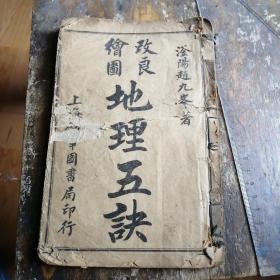 澄陽趙九峯著
改良
繪圖
地理五訣
上海
圖書局印行